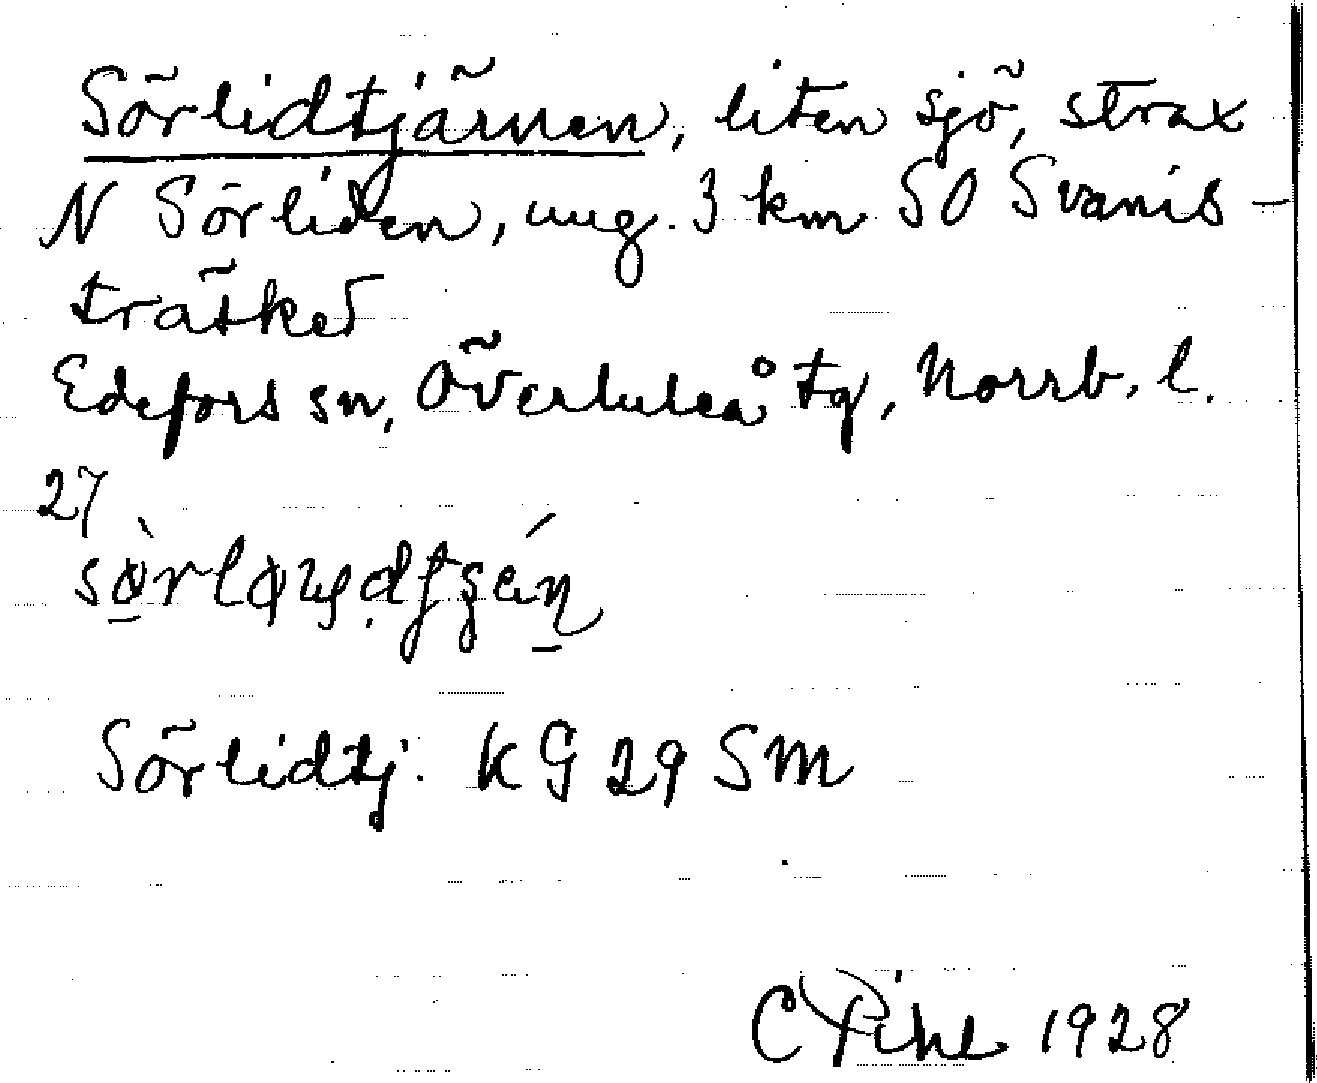 Sörlidtjärnen, liten sjö, strax
N Sörliden, ung. 3 km SO Svanis-
träsket
Edefors sn, Överluleå tg, Norrb. l.
27
Sörlidtj. KG 29 SM
C Pihl 1928